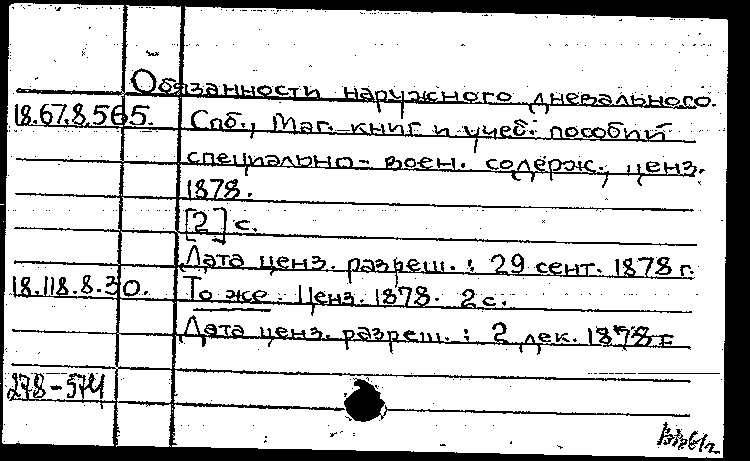 Обязанности наружного дневального.
18.67.8.565. Спб., Маг. книг и учеб. пособий
специально-воен. содерж., ценз.
1878.
[2] с.
Дата ценз. разреш.: 29 сент. 1878 г.
18.118.8.30. То же. Ценз. 1878. 2 с.
Дата ценз. разреш.: 2 дек. 1878 г.
278-574